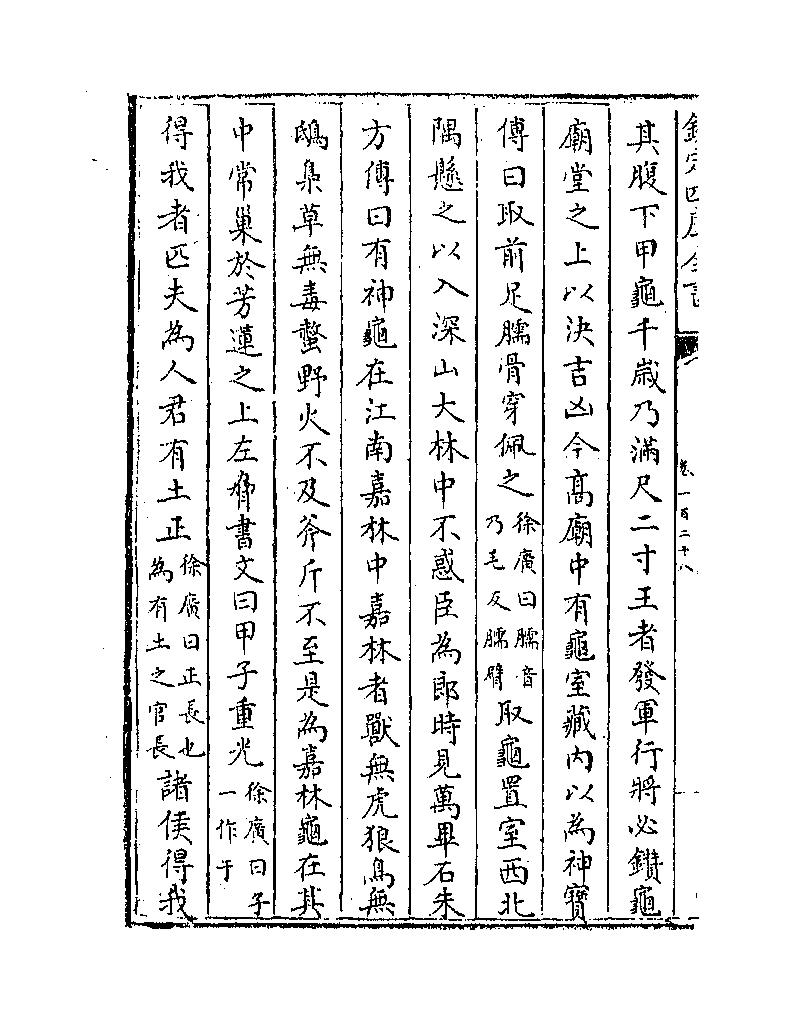 欽定四庫全書
卷一百二十八
其腹下甲龜千歲乃滿尺二寸王者發軍行將必鑽龜
廟堂之上以決吉凶今髙廟中有龜室藏内以為神寶
傳曰取前足臑骨穿佩之徐廣曰臑音乃毛反臑臂取龜置室西北
隅懸之以入深山大林中不惑臣為郎時見萬畢石朱
方傳曰有神龜在江南嘉林中嘉林者獸無虎狼鳥無
鴟梟草無毒螫野火不及斧斤不至是為嘉林龜在其
中常巢於芳蓮之上左脅書文曰甲子重光徐廣曰子一作于
得我者匹夫為人君有土正徐廣曰正長也為有土之官長諸侯得我